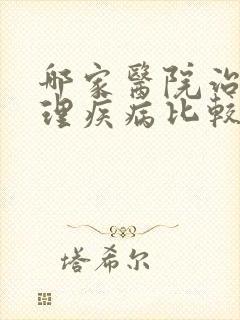 哪家醫院治
理疾病比較
塔希尔